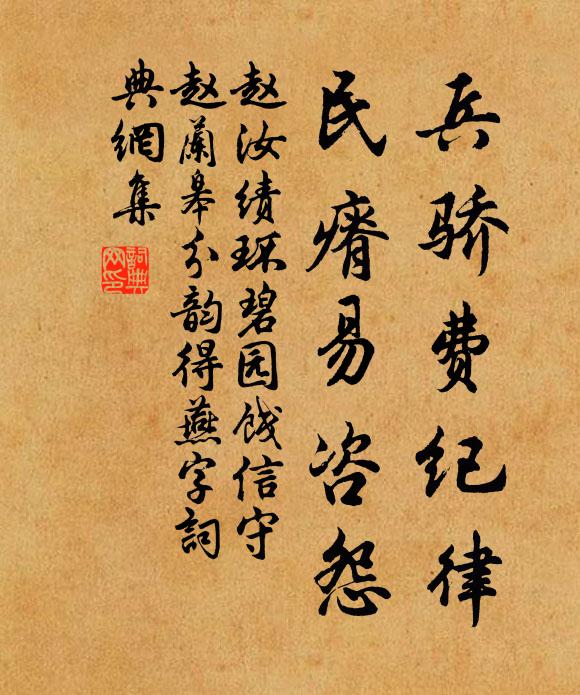 兵骄费纪律
民瘠易咨怨
赵汝绩环碧园饯信守
赵蘭皋分韵得燕字詞
典網集
詞典网印